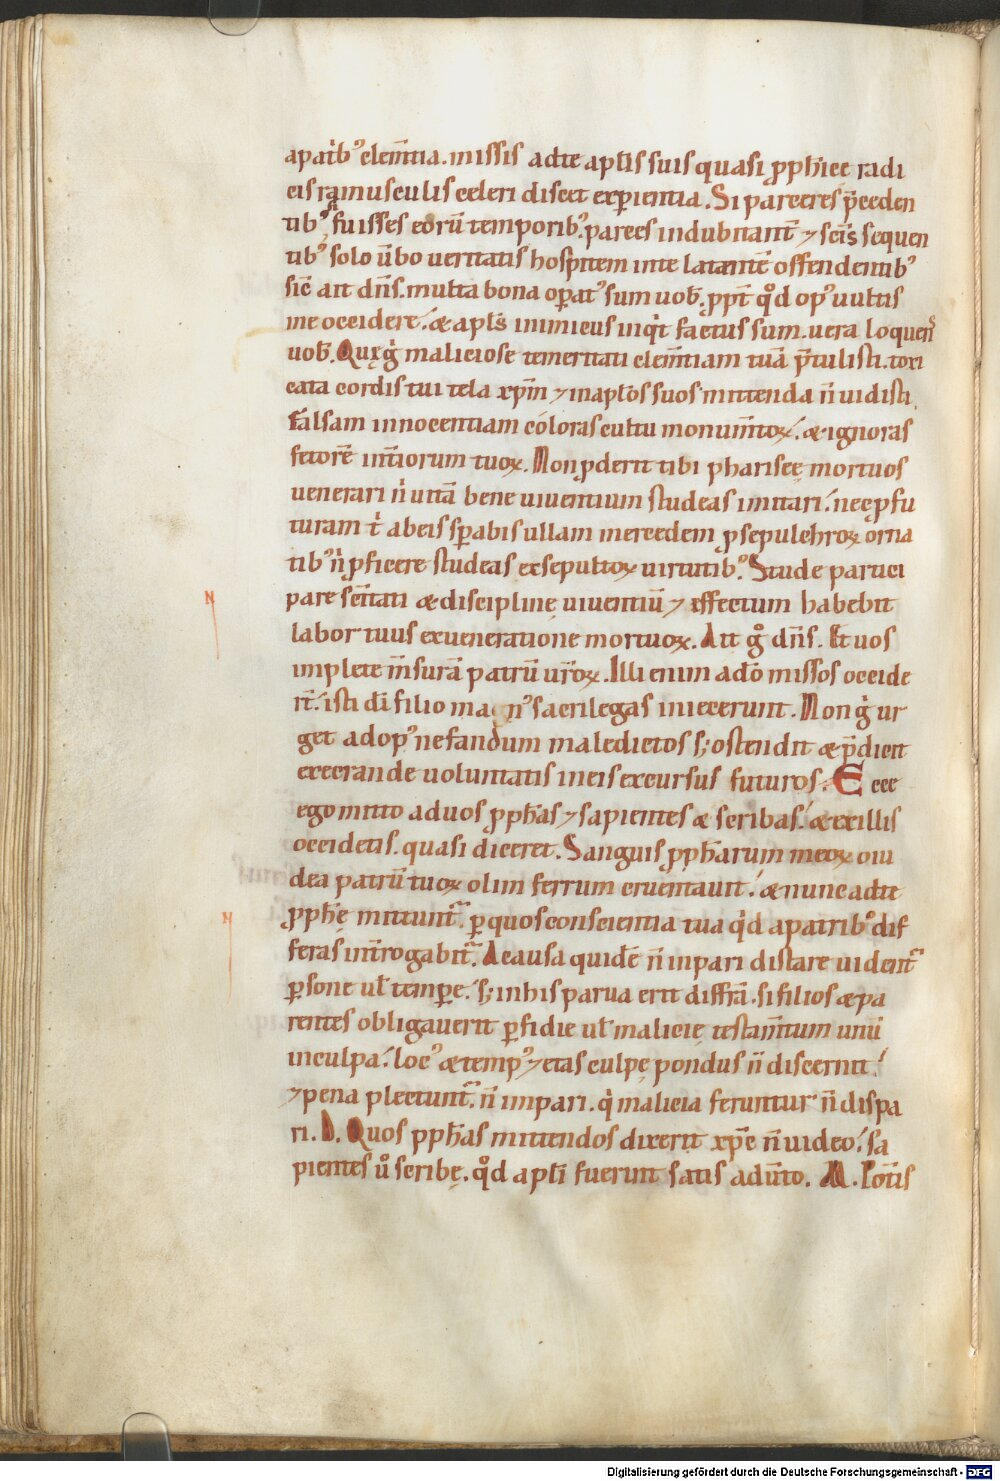 apatribꝰ clem̄tia. missis adte apl̄is suis quasi ꝓph̄ice radi
cis ramusculis celeri discet exꝑientia. Si parceres p̄ceden
tibꝰ, fuisses eorū temporibꝰ. parces indubitant̄ ⁊ sc̄is sequen
tibꝰ solo u̅bo ueritatis hospitem inte latantē offendentibꝰ
sic̄ ait dn̄s. multa bona oꝑatꝰ sum uob̄. ꝓpt̄ qd̊ opꝰ uultis
me occidere. & apl̄s inimicus inqͥt factus sum. uera loquens
uob̄. Quę gͥ maliciose temeritati clem̄tiam tuā p̄tulisti. toxi
cata cordis tui tela xp̄m ⁊ inapl̄os suos mittenda n̄ uidisti.
Falsam innocentiam coloras cultu monum̄toꝝ. & ignoras
fetorē int̄iorum tuoꝝ. Non ꝓderit tibi pharisee mortuos
uenerari nͥ uitā bene uiuentium studeas imitari. nec ꝓfu
turam tͥ abeis sꝑabis ullam mercedem ꝓ sepulchroꝝ orna
tibꝰ nͥ ꝓficere studeas exsepultoꝝ uirtutibꝰ. Stude partici
pare sc̄itati & discipline uiuentiū ⁊ effectum habebit
labor tuus exueneratione mortuoꝝ. Ait g̊ dn̄s. Et uos
implete m̄surā patrū ur̄oꝝ. Illi enim ad̄o missos occide
rt̄. isti d̄i filio magnꝰ sacrilegas iniecerunt. Non gͥ ur
get adopꝰ nefandum maledictos sꝫ ostendit & p̄dicit
execrande uoluntatis ineis excursus futuros. Ecce
ego mitto aduos ꝓph̄as ⁊ sapientes & scribas. & exillis
occidetis. quasi diceret. Sanguis ꝓph̄arum meoꝝ o iu
dea patrū tuoꝝ olim ferrum cruentauit. & nunc adte
ꝓph̄ę mittunt᷑. ꝑ quos conscientia tua qͥd apatribꝰ dif
feras int̄rogabit᷑. Acausa quidē n̄ inpari distare uident᷑
ꝑsone ul̄ tempore. sꝫ inhis parua erit diffr̄a. si filios & pa
rentes obligauerit ꝑfidie ul̄ malicię testam̄tum unū
inculpa. locꝰ & tempꝰ ⁊ etas culpę pondus n̄ discernit.
⁊ pena plectunt᷑. n̄ impari. qͥ malicia feruntur n̄ dispa
ri. D. Quos ꝓph̄as mittendos dixerit xp̄c n̄ uideo. sa
pientes u̅o scribę. qd̊ apl̄i fuerunt satis adu̅to. M. Pot̄is
N
N
Digitalisierung gefördert durch die Deutsche Forschungsgemeinschaft - DFG